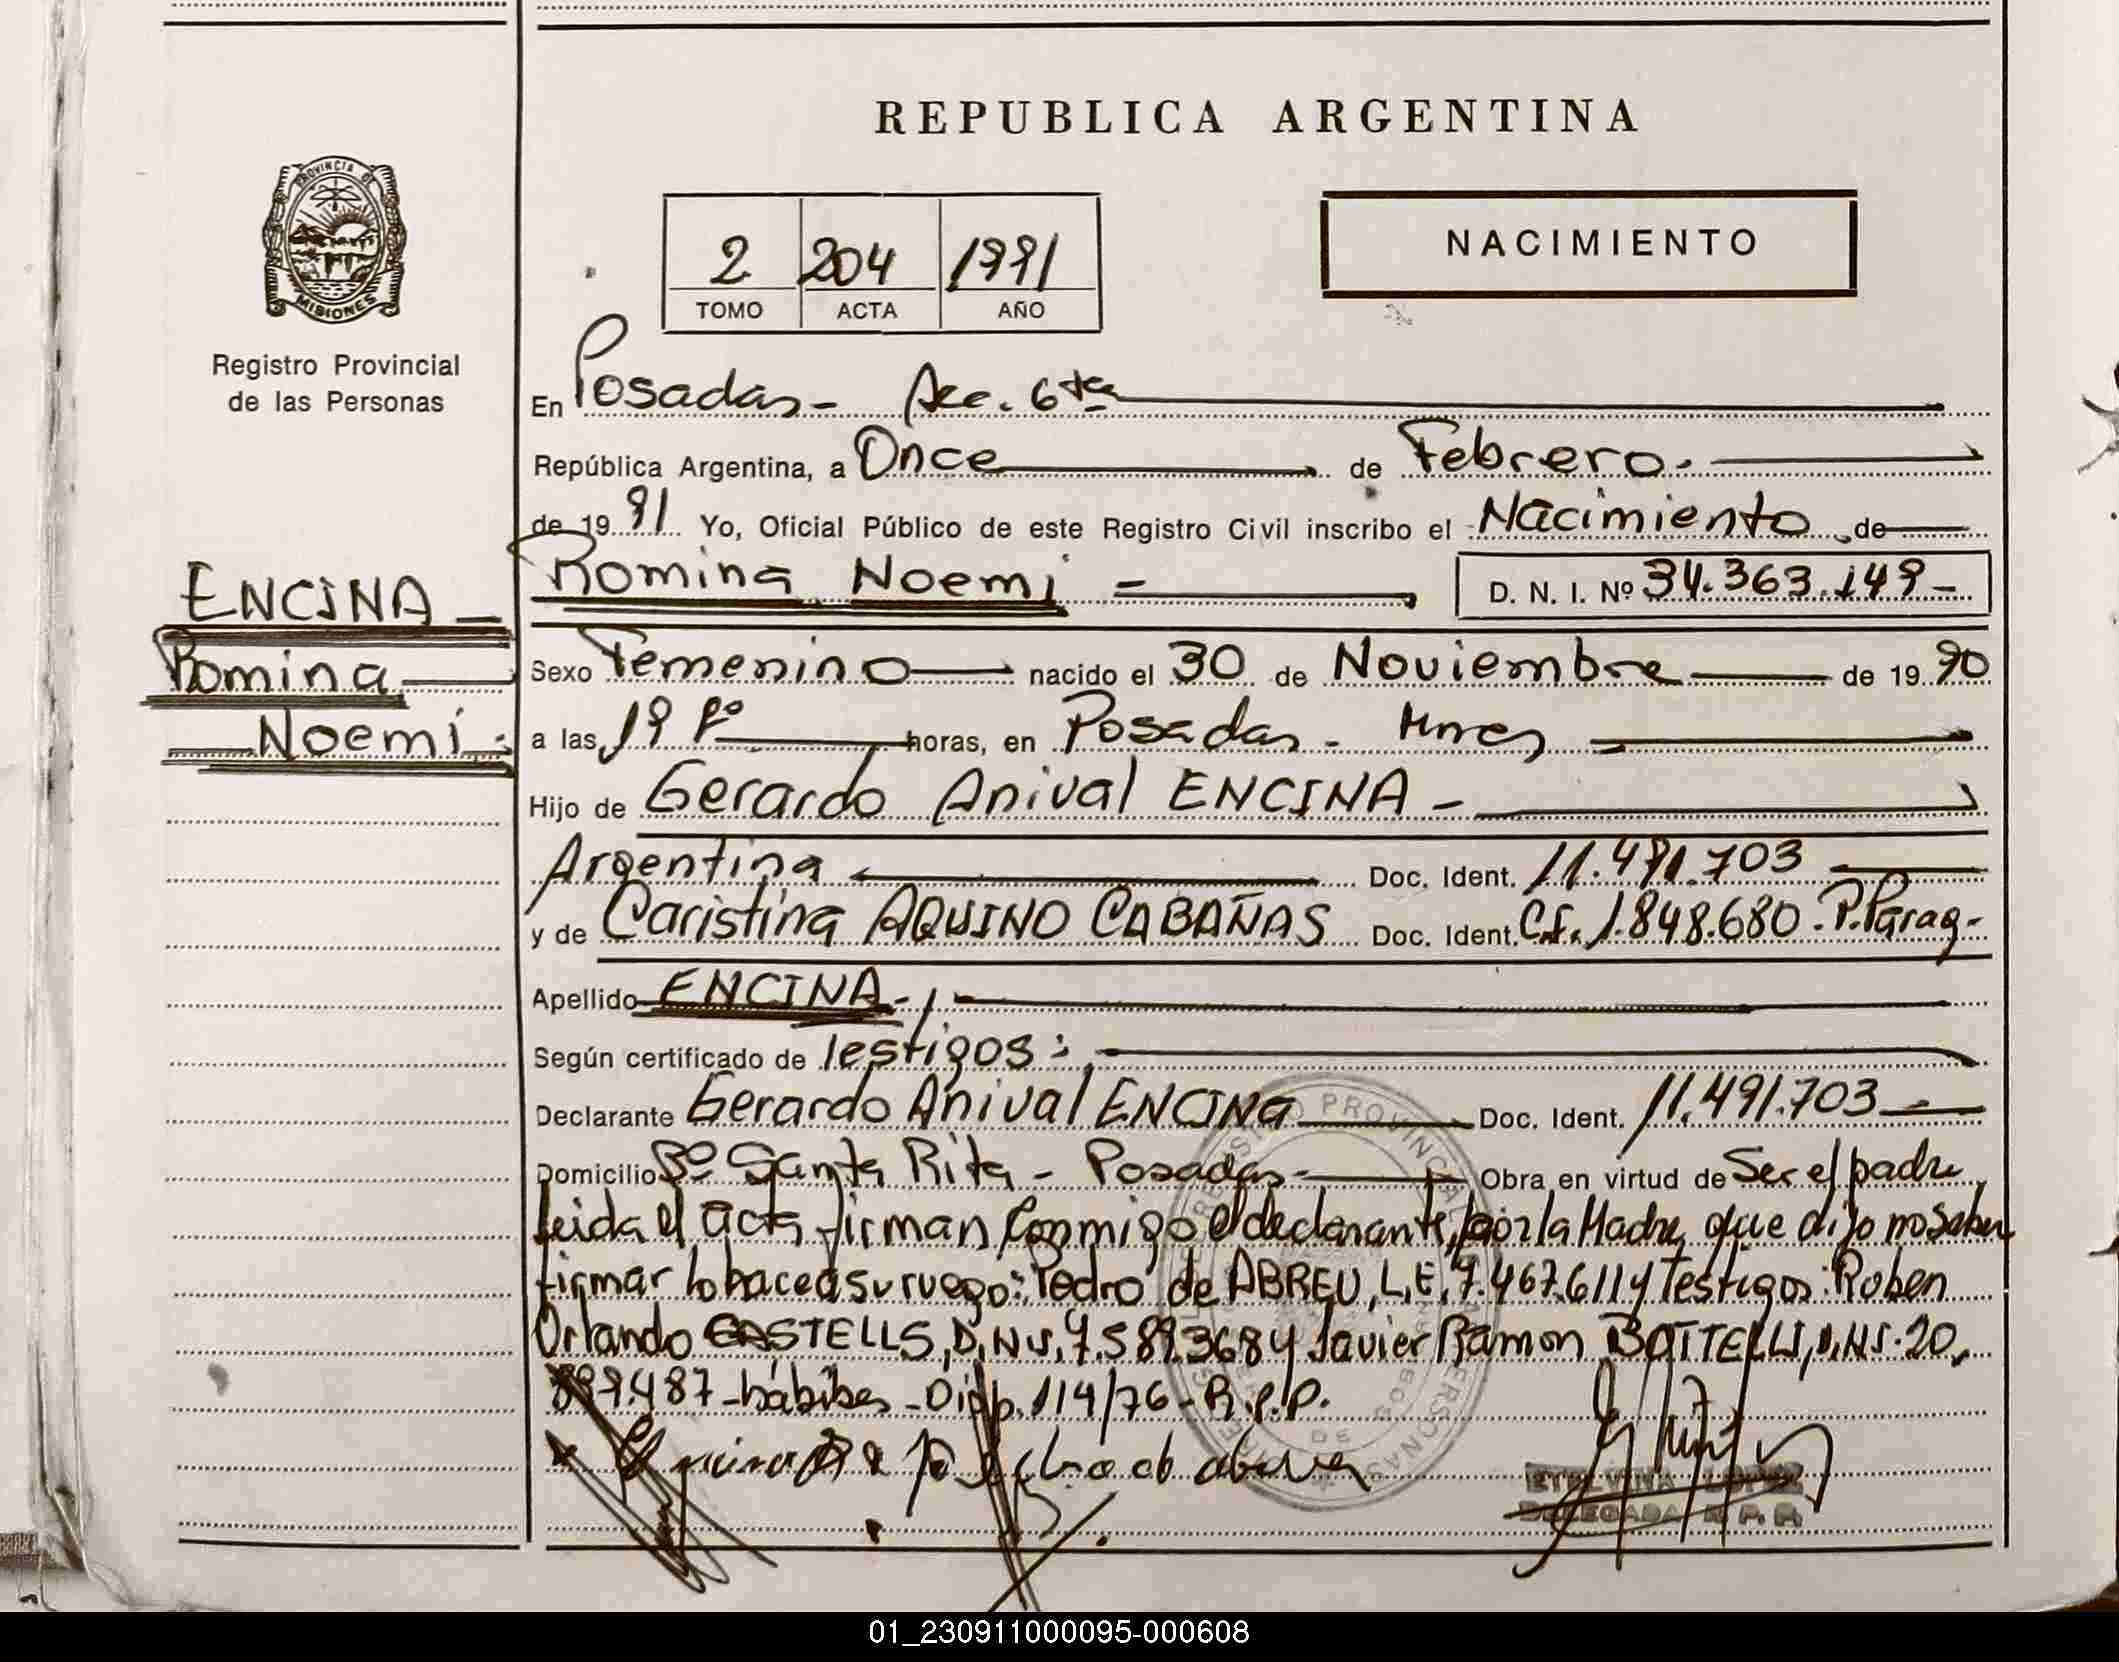 REPUBLICA ARGENTINA
PROVINCIA DE
MISIONES
Registro Provincial
de las Personas
2 204 1991
TOMO ACTA AÑO
NACIMIENTO
En Posadas - Sec. 6ta
República Argentina, a Once de Febrero.
de 19 91 Yo, Oficial Público de este Registro Civil inscribo el Nacimiento de
ENCINA
Romina
Noemí
Romina Noemí D. N. I. Nº 34.363.149
Sexo Femenino nacido el 30 de Noviembre de 19 90
a las 19 hº horas, en Posadas - Mnes
Hijo de Gerardo Anival ENCINA
Argentina Doc. Ident. 11.491.703
y de Caristina AQUINO CABAÑAS Doc. Ident. C.I. 1.848.680. P. Parag.
Apellido ENCINA
Según certificado de Testigos:
Declarante Gerardo Anival ENCINA Doc. Ident. 11.491.703
Domicilio Bº Santa Rita - Posadas Obra en virtud de Ser el padre
Leida el acta firman Conmigo el declarante, por la Madre que dijo no saber
firmar lo hace a su ruego: Pedro de ABREU, L.E. 7.467.611 y Testigos: Roben
Orlando CASTELLS, D.N.I. 7.589.368 y Javier Ramon BOTTELLI, D.N.I. 20.
887.487 - hábiles - Disp. 114/76 - R.P.P.
ETELVINA LOPEZ
DELEGADA R. P. P.
01_230911000095-000608